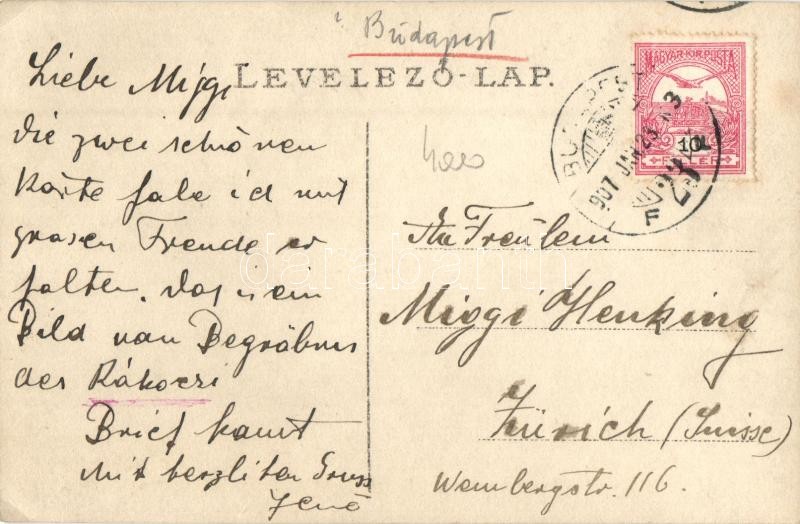 Budapest
LEVELEZŐ-LAP.
MAGYAR·KIR·POSTA
10
FILLÉR
BUDAPEST
907 JAN 23
F
Liebe Miggi
die zwei schönen
Karte habe ich mit
grosen Freude er
halten. das is ein
Bild van Begräbnis
des Rákoczi
Brief kamt
Mit herzlichen Gruss
Jenő
An Freulein
Miggi Henking
Zürich (Suisse)
Weinbergstr. 116.
darabanth